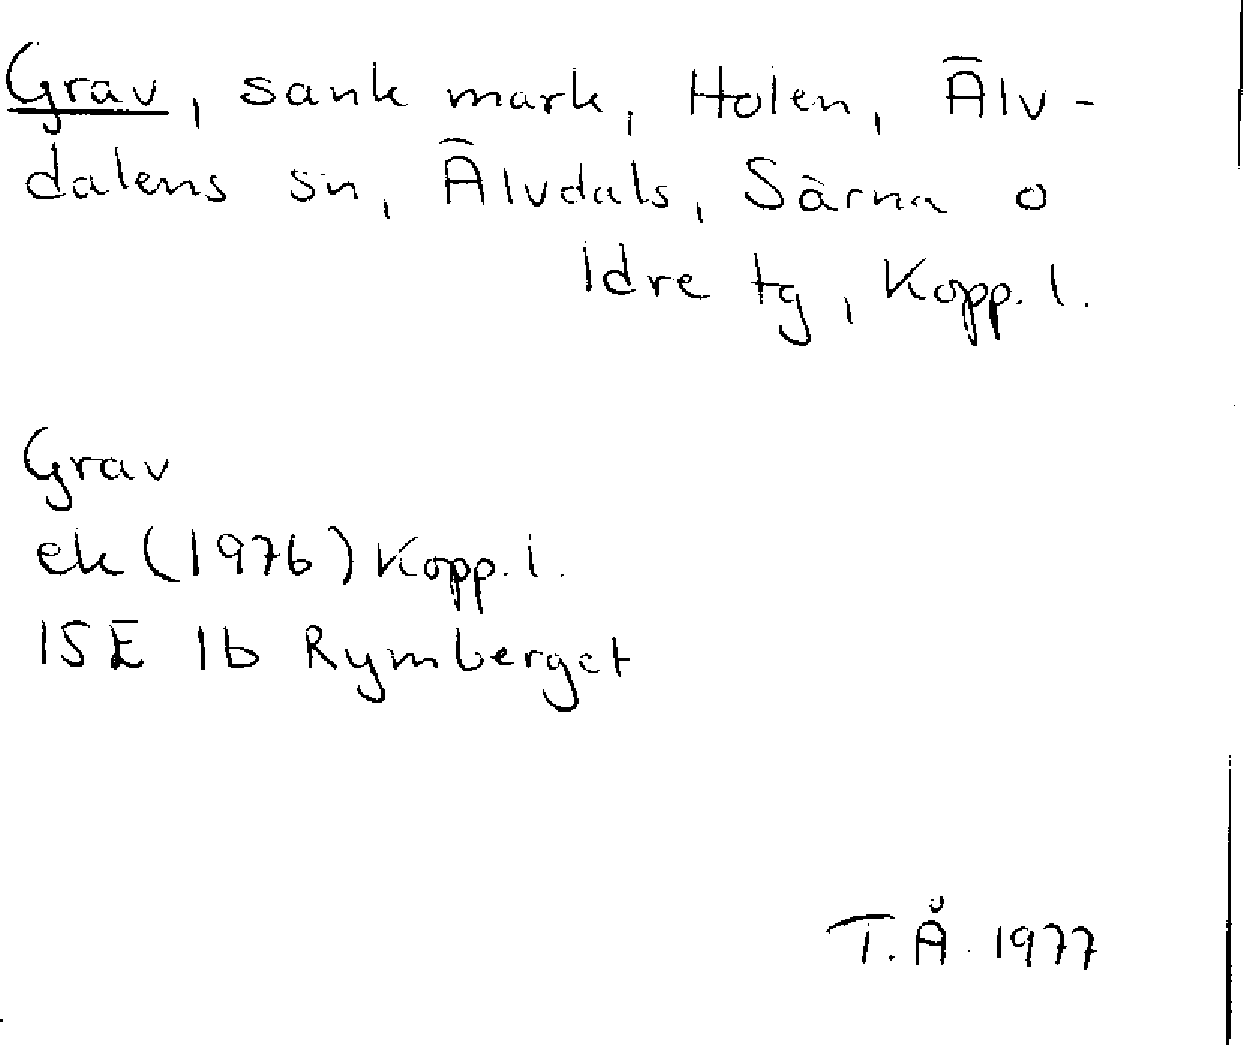 Grav, sank mark, Holen, Älv-
dalens sn, Älvdals, Särna o
Idre tg, Kopp. l.
Grav
ek (1976) Kopp. l.
15E 1b Rymberget
T.Å. 1977